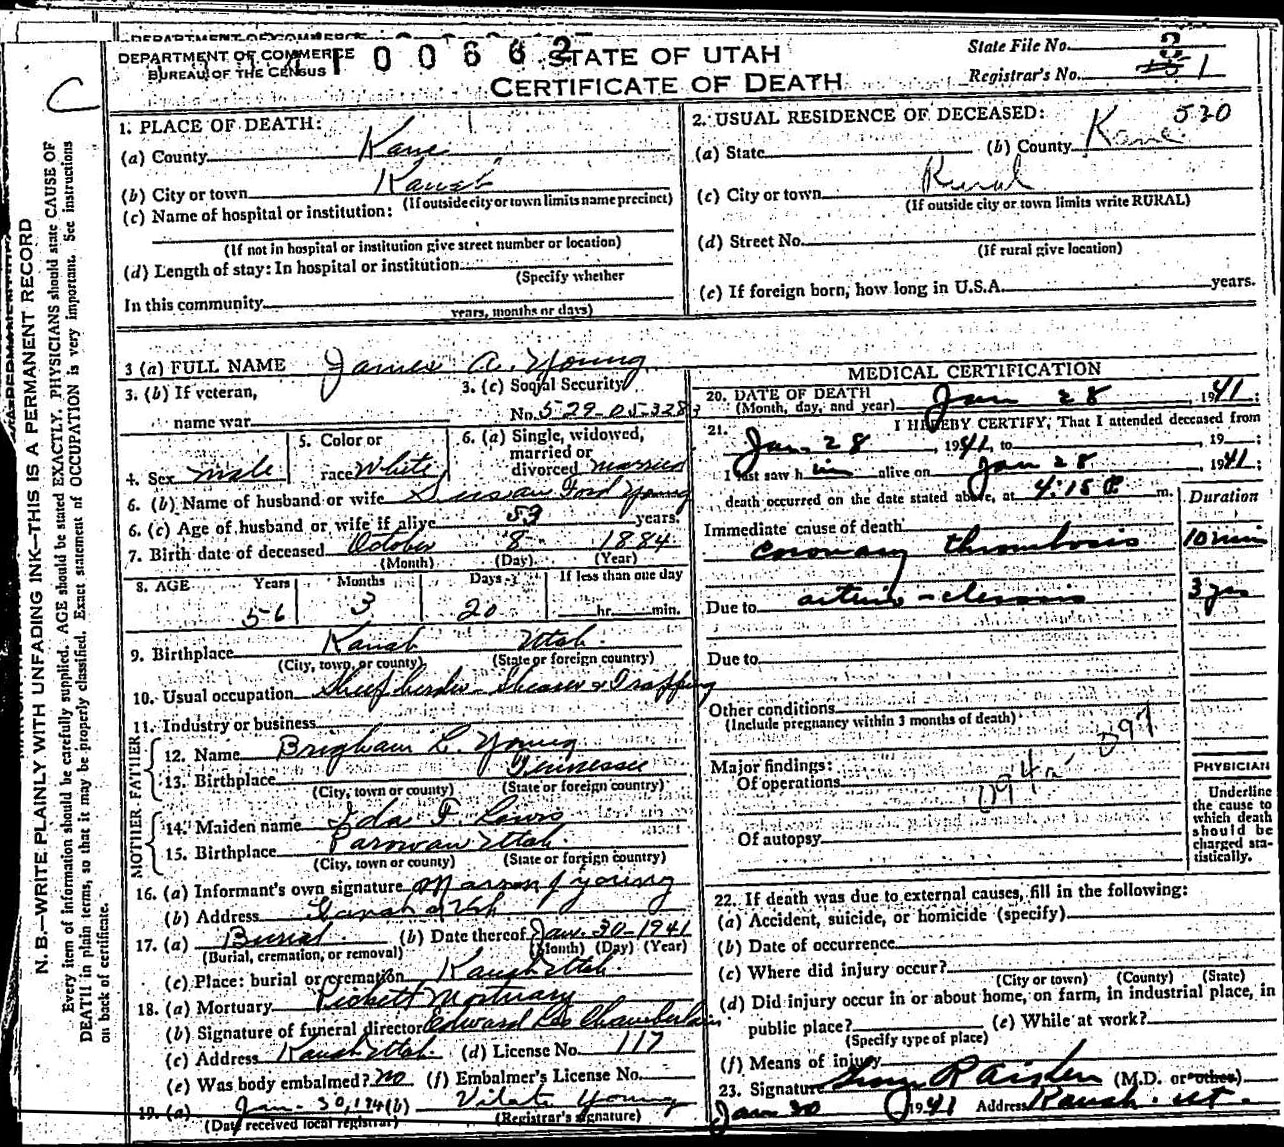 DEPARTMENT OF COMMERCE
BUREAU OF THE CENSUS
1 00662
STATE OF UTAH
CERTIFICATE OF DEATH
State File No. 3
Registrar's No. 1
C
N. B.—WRITE PLAINLY WITH UNFADING INK—THIS IS A PERMANENT RECORD
Every item of information should be carefully supplied. AGE should be stated EXACTLY. PHYSICIANS should state CAUSE OF
DEATH in plain terms, so that it may be properly classified. Exact statement of OCCUPATION is very important. See instructions
on back of certificate.
1. PLACE OF DEATH:
(a) County Kane
(b) City or town Kanab
(If outside city or town limits name precinct)
(c) Name of hospital or institution:
(If not in hospital or institution give street number or location)
(d) Length of stay: In hospital or institution
(Specify whether
In this community
years, months or days)
2. USUAL RESIDENCE OF DECEASED: 520
(a) State (b) County Kane
(c) City or town Rural
(If outside city or town limits write RURAL)
(d) Street No.
(If rural give location)
(e) If foreign born, how long in U.S.A. years.
3 (a) FULL NAME James A. Young
3. (b) If veteran,
name war
3. (c) Social Security
No. 529-05-3283
4. Sex male
5. Color or
race White
6. (a) Single, widowed,
married or
divorced married
6. (b) Name of husband or wife Susan Ford Young
6. (c) Age of husband or wife if alive 53 years.
7. Birth date of deceased October 8 1884
(Month) (Day) (Year)
8. AGE Years Months Days If less than one day
56 3 20 hr. min.
9. Birthplace Kanab Utah
(City, town, or county) (State or foreign country)
10. Usual occupation Sheepherder - Shearer & Trapping
11. Industry or business
FATHER
12. Name Brigham L. Young
13. Birthplace Tennessee
(City, town or county) (State or foreign country)
MOTHER
14. Maiden name Ida F Lewis
15. Birthplace Parowan Utah
(City, town or county) (State or foreign country)
16. (a) Informant's own signature Young
(b) Address Kanab Utah
17. (a) Burial (b) Date thereof Jan. 30-1941
(Burial, cremation, or removal) (Month) (Day) (Year)
(c) Place: burial or cremation Kanab Utah
18. (a) Mortuary Mortuary
(b) Signature of funeral director Edward Leo Chamberlain
(c) Address Kanab Utah. (d) License No. 117
(e) Was body embalmed? no (f) Embalmer's License No.
19. (a) Jan. 30, 194 (b) Vilate Young
(Date received local registrar) (Registrar's signature)
MEDICAL CERTIFICATION
20. DATE OF DEATH
(Month, day, and year) Jan 28, 1941;
21. I HEREBY CERTIFY, That I attended deceased from
Jan. 28, 1941, to , 19 ;
I last saw him alive on Jan 28, 1941;
death occurred on the date stated above, at 4:15 P. m.
Duration
Immediate cause of death
coronary thrombosis 10 min
Due to arterio-sclerosis 3 yrs
Due to
Other conditions
(Include pregnancy within 3 months of death)
097
Major findings:
Of operations 094
Of autopsy
PHYSICIAN
Underline
the cause to
which death
should be
charged sta-
tistically.
22. If death was due to external causes, fill in the following:
(a) Accident, suicide, or homicide (specify)
(b) Date of occurrence
(c) Where did injury occur?
(City or town) (County) (State)
(d) Did injury occur in or about home, on farm, in industrial place, in
public place? (e) While at work?
(Specify type of place)
(f) Means of injury
23. Signature (M.D. or other)
Jan 30 1941 Address Kanab. Ut.